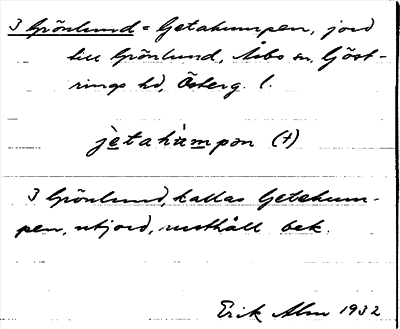 3 Grönlund = Getahumpen, jord
till Grönlund, Åsbo sn, Göst-
rings hd, Österg. l.
jètahùmpən (†)
3 Grönlund, kallas Getehum-
pen, utjord, rusthåll bek.
Erik Alm 1932